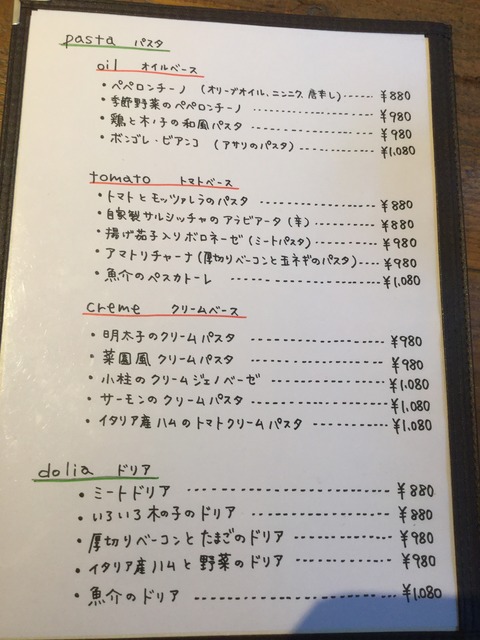 pasta パスタ
oil オイルベース
・ペペロンチーノ (オリーブオイル、ニンニク、唐辛し)-----¥880
・季節野菜のペペロンチーノ ----------¥980
・鶏と木ノ子の和風パスタ ----------¥980
・ボンゴレ・ビアンコ (アサリのパスタ) ----------¥1,080
tomato トマトベース
・トマトとモッツァレラのパスタ ----------¥880
・自家製サルシッチャのアラビアータ(辛) ----------¥880
・揚げ茄子入りボロネーゼ(ミートパスタ) ----------¥980
・アマトリチャーナ(厚切りベーコンと玉ネギのパスタ)----¥980
・魚介のペスカトーレ ----------¥1,080
creme クリームベース
・明太子のクリームパスタ ----------¥980
・菜園風クリームパスタ ----------¥980
・小柱のクリームジェノベーゼ ----------¥1,080
・サーモンのクリームパスタ ----------¥1,080
・イタリア産ハムのトマトクリームパスタ ----------¥1,080
dolia ドリア
・ミートドリア ----------¥880
・いろいろ木の子のドリア ----------¥880
・厚切りベーコンとたまごのドリア ----------¥980
・イタリア産ハムと野菜のドリア ----------¥980
・魚介のドリア ----------¥1,080